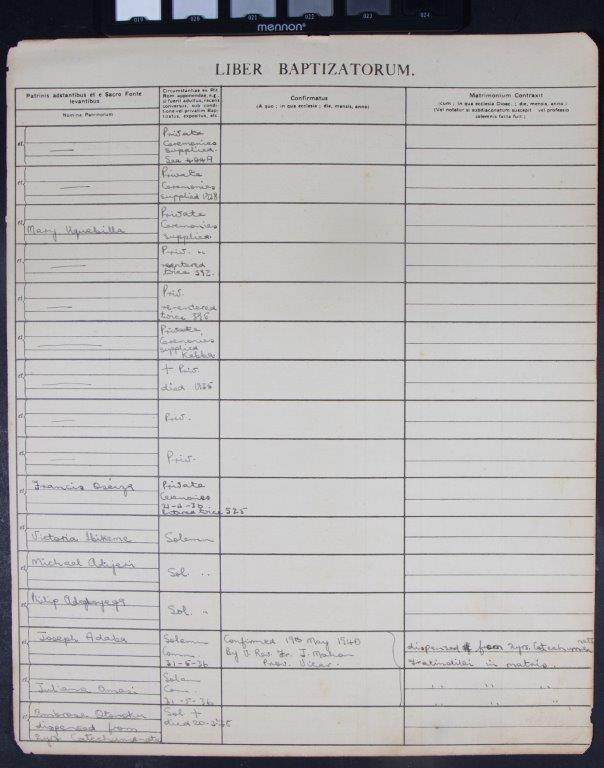 019 020 021 022 023 024
mennon
LIBER BAPTIZATORUM.
Patrinis adstantibus et e Sacro Fonte
levantibus
Nomina Patrinorum
Circumstantiae ex Rit.
Rom. apponendae, e.g.,
si fuerit adultus, recens
conversus, sub condi-
tione vel privatim Bap-
tizatus, expositus, etc.
Confirmatus
(A quo ; in qua ecclesia ; die, mensis, anno)
Matrimonium Contraxit
(cum ; in qua ecclesia Diosc. ; die, mensis, anno.)
(Vel notatur si subdiaconatum suscepit vel professio
solemnis facta fuit.)
et
Private
Ceremonies
supplied.
See
et
Private
Ceremonies
supplied 1928
et
Mary
Private
Ceremonies
supplied
et
Priv. "
re-entered
twice 392.
et
Priv.
re-entered
twice 396
et
Private
Ceremonies
supplied
Kabba
et
+ Priv.
died 1935
et
Priv.
et
Priv.
et
Francis
Private
Ceremonies
21-2-36
Entered twice 525
et
Victoria
Solemn
et
Michael
Sol. "
et
Philip
Sol. "
et
Joseph Adaba
Solemn
Com.
31-5-36
Confirmed 19th May 1940
By V. Rev. Fr. J. Mahon
Prov. Vicar.
dispensed from 2yrs. Catechumenate
in matrio.
et
Juliana Omasi
Solem
Com.
31-5-36
" " "
et
Ambrose
dispensed from
2yrs Catechumenate
Sol +
died 20-3-35
" " "